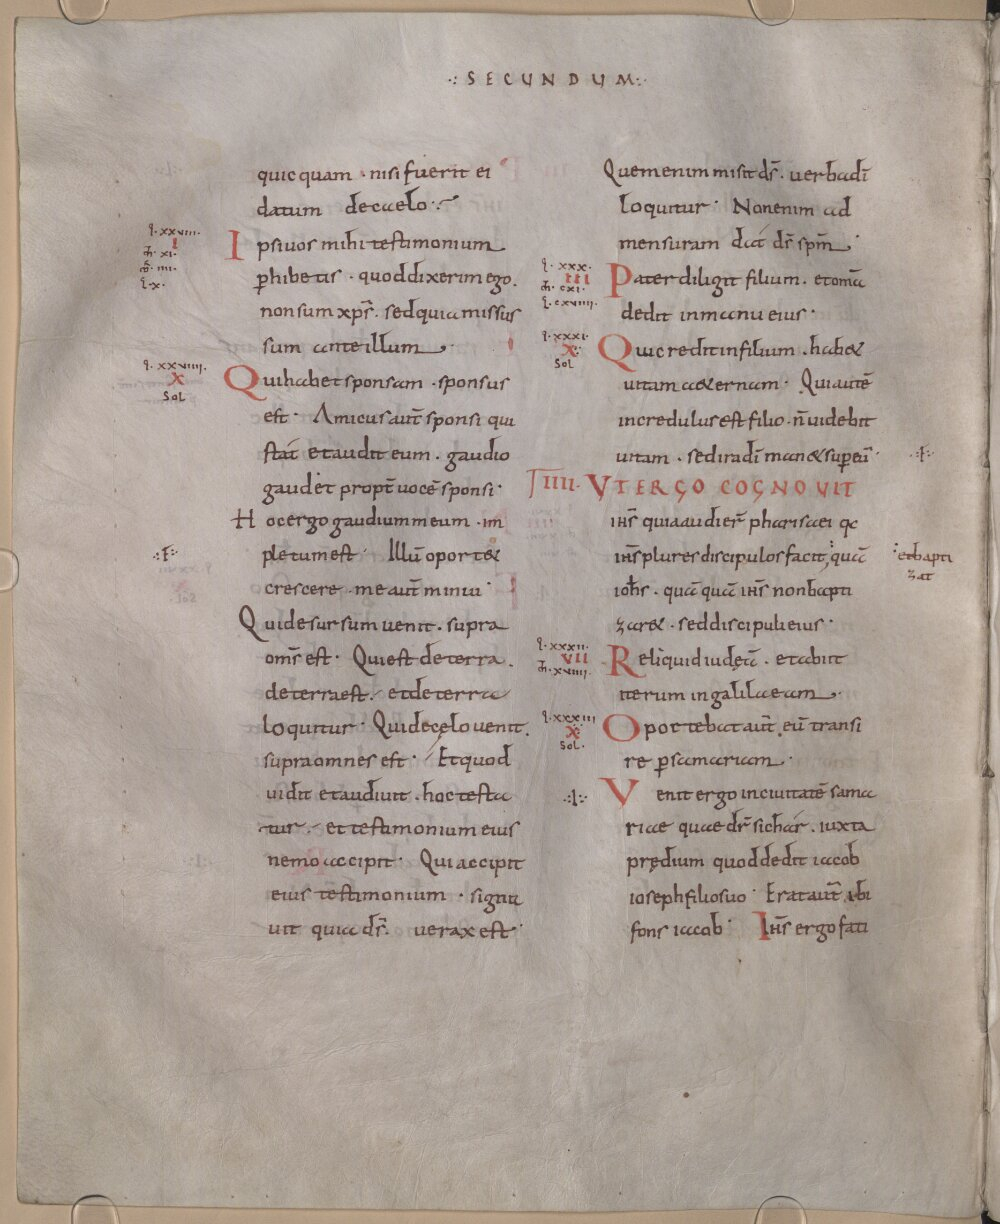 ·: SECUNDUM :·
quicquam · nisi fuerit ei
datum decaelo ·
q̄· xxviii·
I
m̄· xi·
m̄r· iiii·
l̄· x·
Ipsi uos mihi testimonium
p̱hibetis · quod dixerim ego ·
non sum xp̄s̄ · sed quia missus
sum ante illum ·
q̄· xxviiii·
X
Sol
Qui habet sponsam · sponsus
est · Amicus aut̄ sponsi qui
stat et audit eum · gaudio
gaudet propt̄ uocē sponsi ·
Hoc ergo gaudium meum · im
pletum est · Illū oportet
crescere · me aut̄ minui ·
·:F:·
Qui desursum uenit · supra
om̄s est · Qui est de terra ·
de terra est · et de terra
loquitur · Qui de cęlo uenit ·
supra omnes est · Et quod
uidit et audiuit · hoc testa
tur · et testimonium eius
nemo accipit · Qui accipit
eius testimonium · signa
uit quia d̄s̄ · uerax est ·
Quem enim misit d̄s̄ · uerba dī
loquitur · Non enim ad
mensuram dat d̄s̄ spm̄ ·
q̄· xxx·
III
m̄· cxi·
l̄· cxviiii·
Pater diligit filium · et omā
dedit in manu eius ·
q̄· xxxi·
X
Sol
Qui credit in filium · habet
uitam aeternam · Qui autē
incredulus est filio · n̄ uidebit
uitam · sed ira dī manet sup eū ·
·:F:·
IIII· UT ERGO COGNOVIT
ih̄s̄ quia audier̄ pharisaei qđ
ih̄s̄ plures discipulos facit, quā
: et bapti
zat
ioh̄s · quā quā ih̄s̄ non bapti
zaret · sed discipuli eius ·
q̄· xxxii·
VII
m̄· xviiii·
Reliquid iudęā · et abiit
iterum in galilaeam ·
q̄· xxxiii
X
Sol·
Oportebat aut̄ eū transi
re p̱ samariam ·
·:I:·
Venit ergo in ciuitatē sama
riae quae dr̄ sichar · iuxta
prędium quod dedit iacob
ioseph filio suo · Erat aut̄ ibi
fons iacob · Ih̄s̄ ergo fati